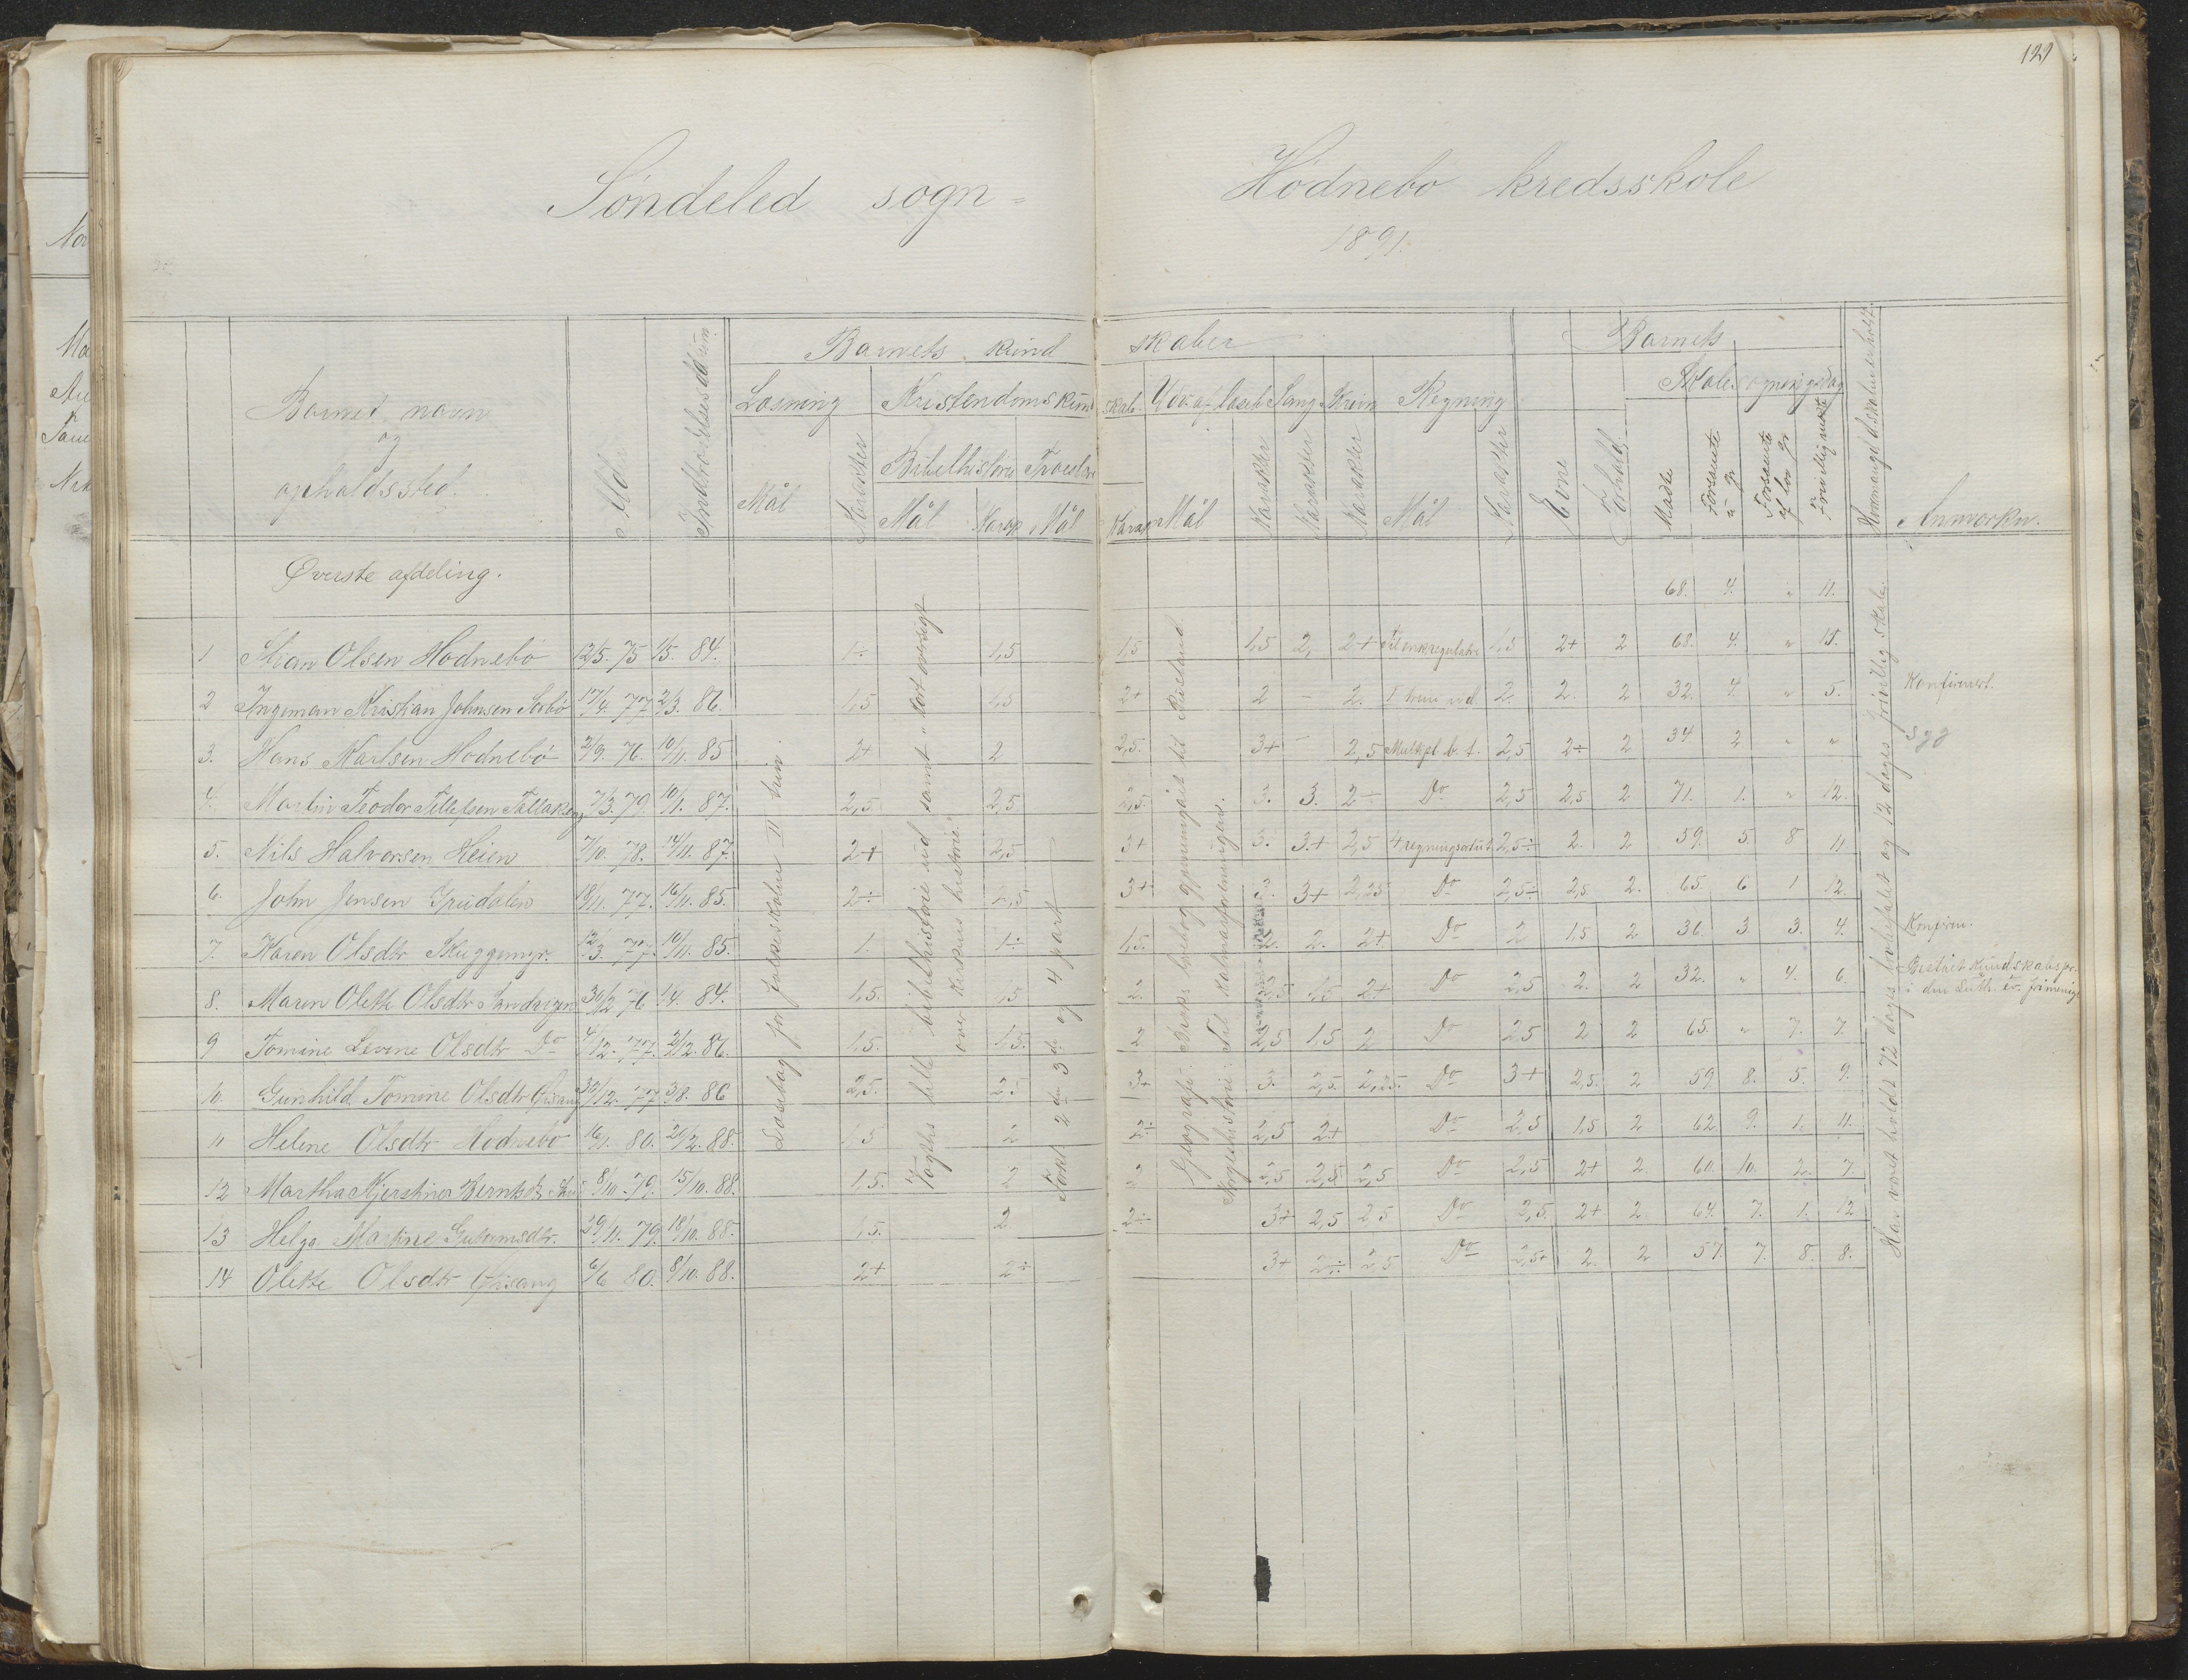 121
Söndeled sogn = Hödnebö kredsskole
1891.
Barnets kund skaber
Barnets
Læsning Kristendomskund skab. Udv. af læseb. Sang. Skriv. Regning
Skolesøgningsdag
Barnets navn
og
opholdssted.
Alder
Indtrædelsesdatum.
Mål Karakter
Bibelhistorie Troeslære
Mål Karap Mål Karap
Mål Karakter Karakter Karakter Mål Karakter
Evne Forhold.
Mødte Forsømte u. gr. Forsømte af lov. gr. Frivillig mødte
Anmærkn.
Øverste afdeling.
68. 4. " 11.
1 Stian Olsen Hodnebö 12/5. 75 1/5. 84. 1÷ 1,5 1,5 1,5 2, 2+ 1,5 2+ 2 68. 4. " 11.
2 Ingeman Kristian Johnsen Sørbö 17/4. 77. 2/3. 86. 1,5 1,5 2+ 2 - 2. 2. 2. 2 32. 4. " 5. Konfirmert.
3. Hans Karlsen Hodnebö 2/9. 76. 10/11. 85 2+ 2 2,5. 3+ - 2,5 Multipl. b. t. 2,5 2÷ 2 34 2 " "
4. Martin Teodor Tellefsen 7/3. 79. 10/1. 87. 2,5. 2,5 2,5. 3. 3. 2÷ Do 2,5 2,5 2 71. 1. " 12.
5. Nils Halvorsen Heien 7/10. 78. 14/11. 87. 2+ 2,5 3+ 3. 3.+ 2,5 4 regningsarter 2,5÷ 2. 2 59. 5. 8 11
6. John Jensen 18/11. 77. 16/11. 85. 2÷ 3+ 3. 3+ 2,25 Do 2,5÷ 2,5. 2. 65. 6 1 12.
7. Karen Olsdtr Skuggemyr. 12/3. 77. 10/11. 85. 1. 1÷ 1,5. 2. 2. 2+ Do 2 1,5 2 36. 3 3. 4. Konfirm.
8. Maren Olette Olsdtr Sandvigen 30/12 76 1/4. 84. 1,5. 1,5 2. 2,5 1,5 2+ Do 2,5 2. 2 32. " 4. 6 Bestået kundskabspr.
i den Luth. ev. frimenigh.
9 Tomine Levine Olsdtr Do 4/12. 77. 2/2. 86. 1,5. 1,5. 2 2,5 1,5 2 Do 2,5 2 2 65. " 7. 7.
10. Gunhild Tomine Olsdtr 30/12. 77 3/8. 86 2,5. 2,5 3+ 3. 2,5. 2,25. Do 3+ 2,5. 2 59 8. 5. 9.
11 Helene Olsdtr Hodnebo 16/1. 80. 20/2. 88. 1,5 2 2÷ 2,5 2+ Do 2,5 1,5 2 62. 9. 1. 11.
12 Martha Kjerstine Berntsdtr 8/10. 79. 15/10. 88. 1,5. 2 2 2,5 2,5 2,5 Do 2,5 2+ 2. 60. 10. 2. 7
13 Helga Martine Gutormsdtr. 29/11. 79. 18/10. 88. 1,5. 2 2÷ 3+ 2,5 2,5 Do 2,5. 2+ 2. 64. 7. 1. 12
14 Olette Olsdtr Glisang 6/6 80. 8/10. 88. 2+ 2÷ 3+ 2÷ 2,5 Do 2,5+ 2. 2 57. 7. 8. 8.
Læsebog for folkeskolen II trin.
Vogts lille bibelhistorie ud samt "kort oversigt
over kirkens historie."
Först 2den 3die og 4 part
Geografi: Geelmuydens bog gjennemgået til Rusland.
Norgeshistorie: Til kalmarforeningen.
Har været holdt 72 dages lovbefalet og 12 dages frivillig skole.